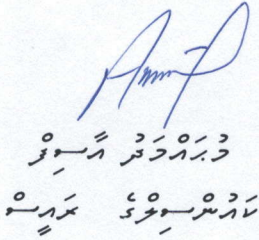 މުޙައްމަދު އާސިފް
ކައުންސިލްގެ ރައީސް